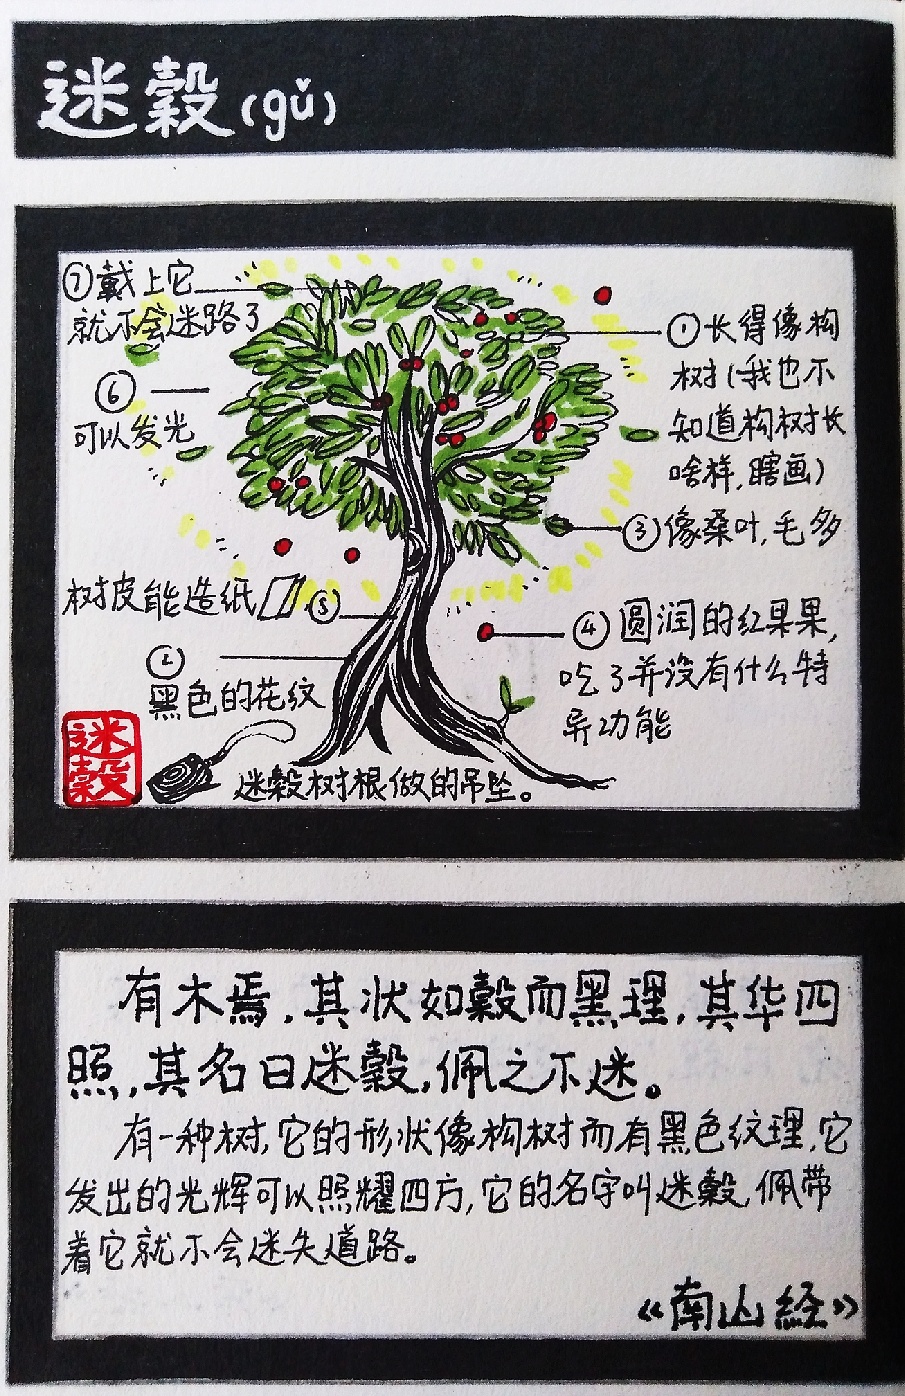 迷穀(gǔ)
①长得像构
树(我也不
知道构树长
啥样,瞎画)
②
黑色的花纹
③像桑叶,毛多
④圆润的红果果,
吃了并没有什么特
异功能
树皮能造纸⑤
⑥
可以发光
⑦戴上它
就不会迷路了
迷穀树根做的吊坠。
迷
穀
有木焉,其状如穀而黑理,其华四
照,其名曰迷穀,佩之不迷。
有一种树,它的形状像构树而有黑色纹理,它
发出的光辉可以照耀四方,它的名字叫迷穀,佩带
着它就不会迷失道路。
《南山经》